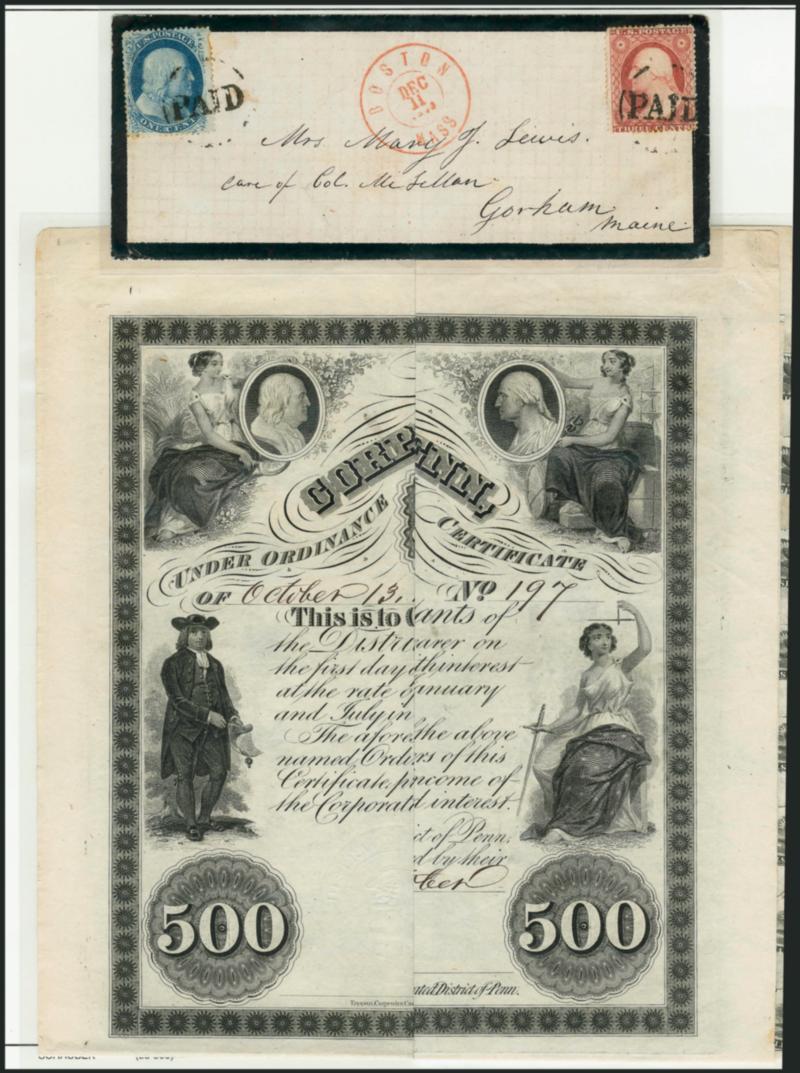 U.S. POSTAGE
ONE CENT
(PAID
BOSTON
DEC
11
MASS
U.S. POSTAGE
THREE CENTS
(PAID
Mrs Mary J. Lewis.
care of Col. McLellan
Gorham
Maine
CORPNN,
UNDER ORDINANCE CERTIFICATE
OF October 13, No 197
This is to ants of
the Distrurer on
the first day thinterest
at the rate anuary
and July in
The afore the above
named Orders of this
Certificate, pincome of
the Corporat interest.
ct of Penn,
d by their
ber
500 500
ted District of Penn.
Toppan, Carpenter